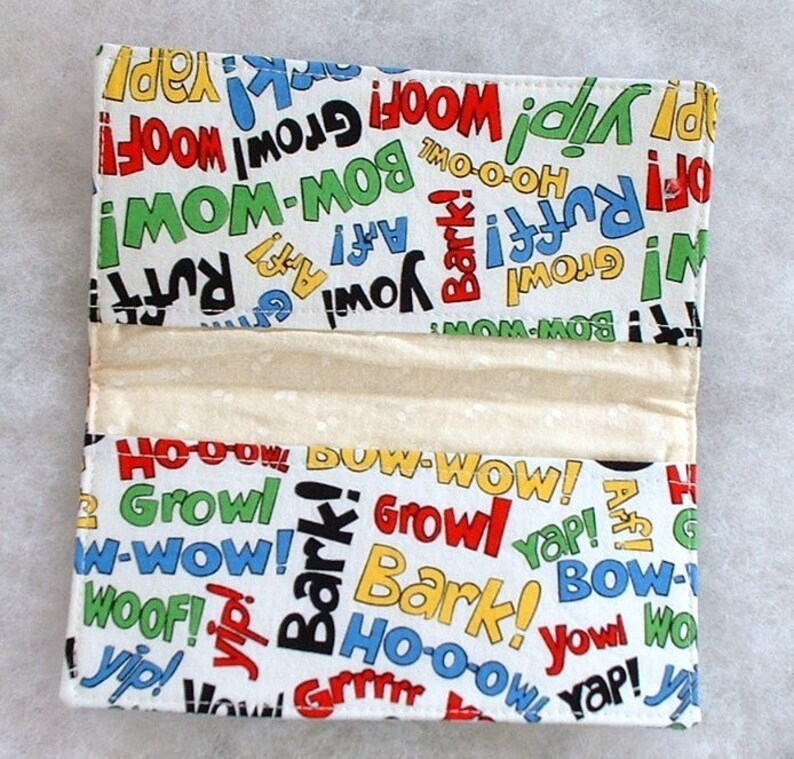 Yap!
Bark!
Woof!
Yip!
Yap!
Woof!
Growl
Ho-o-owl
Woof!
Bow-wow!
Arf!
Arf!
Bark!
Ruff!
Growl
Yowl
Ruff
Bow-wow
Ho-o-owl
Bow-wow!
Growl
Bark!
Growl
Yap!
Arf!
w-wow!
Bark!
Bow-
Woof!
Yip!
Ho-o-owl
Yowl
Wo
Yip!
Yowl
Grrrrr
Yap!